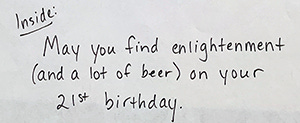 Inside:
May you find enlightenment
(and a lot of beer) on your
21st birthday.